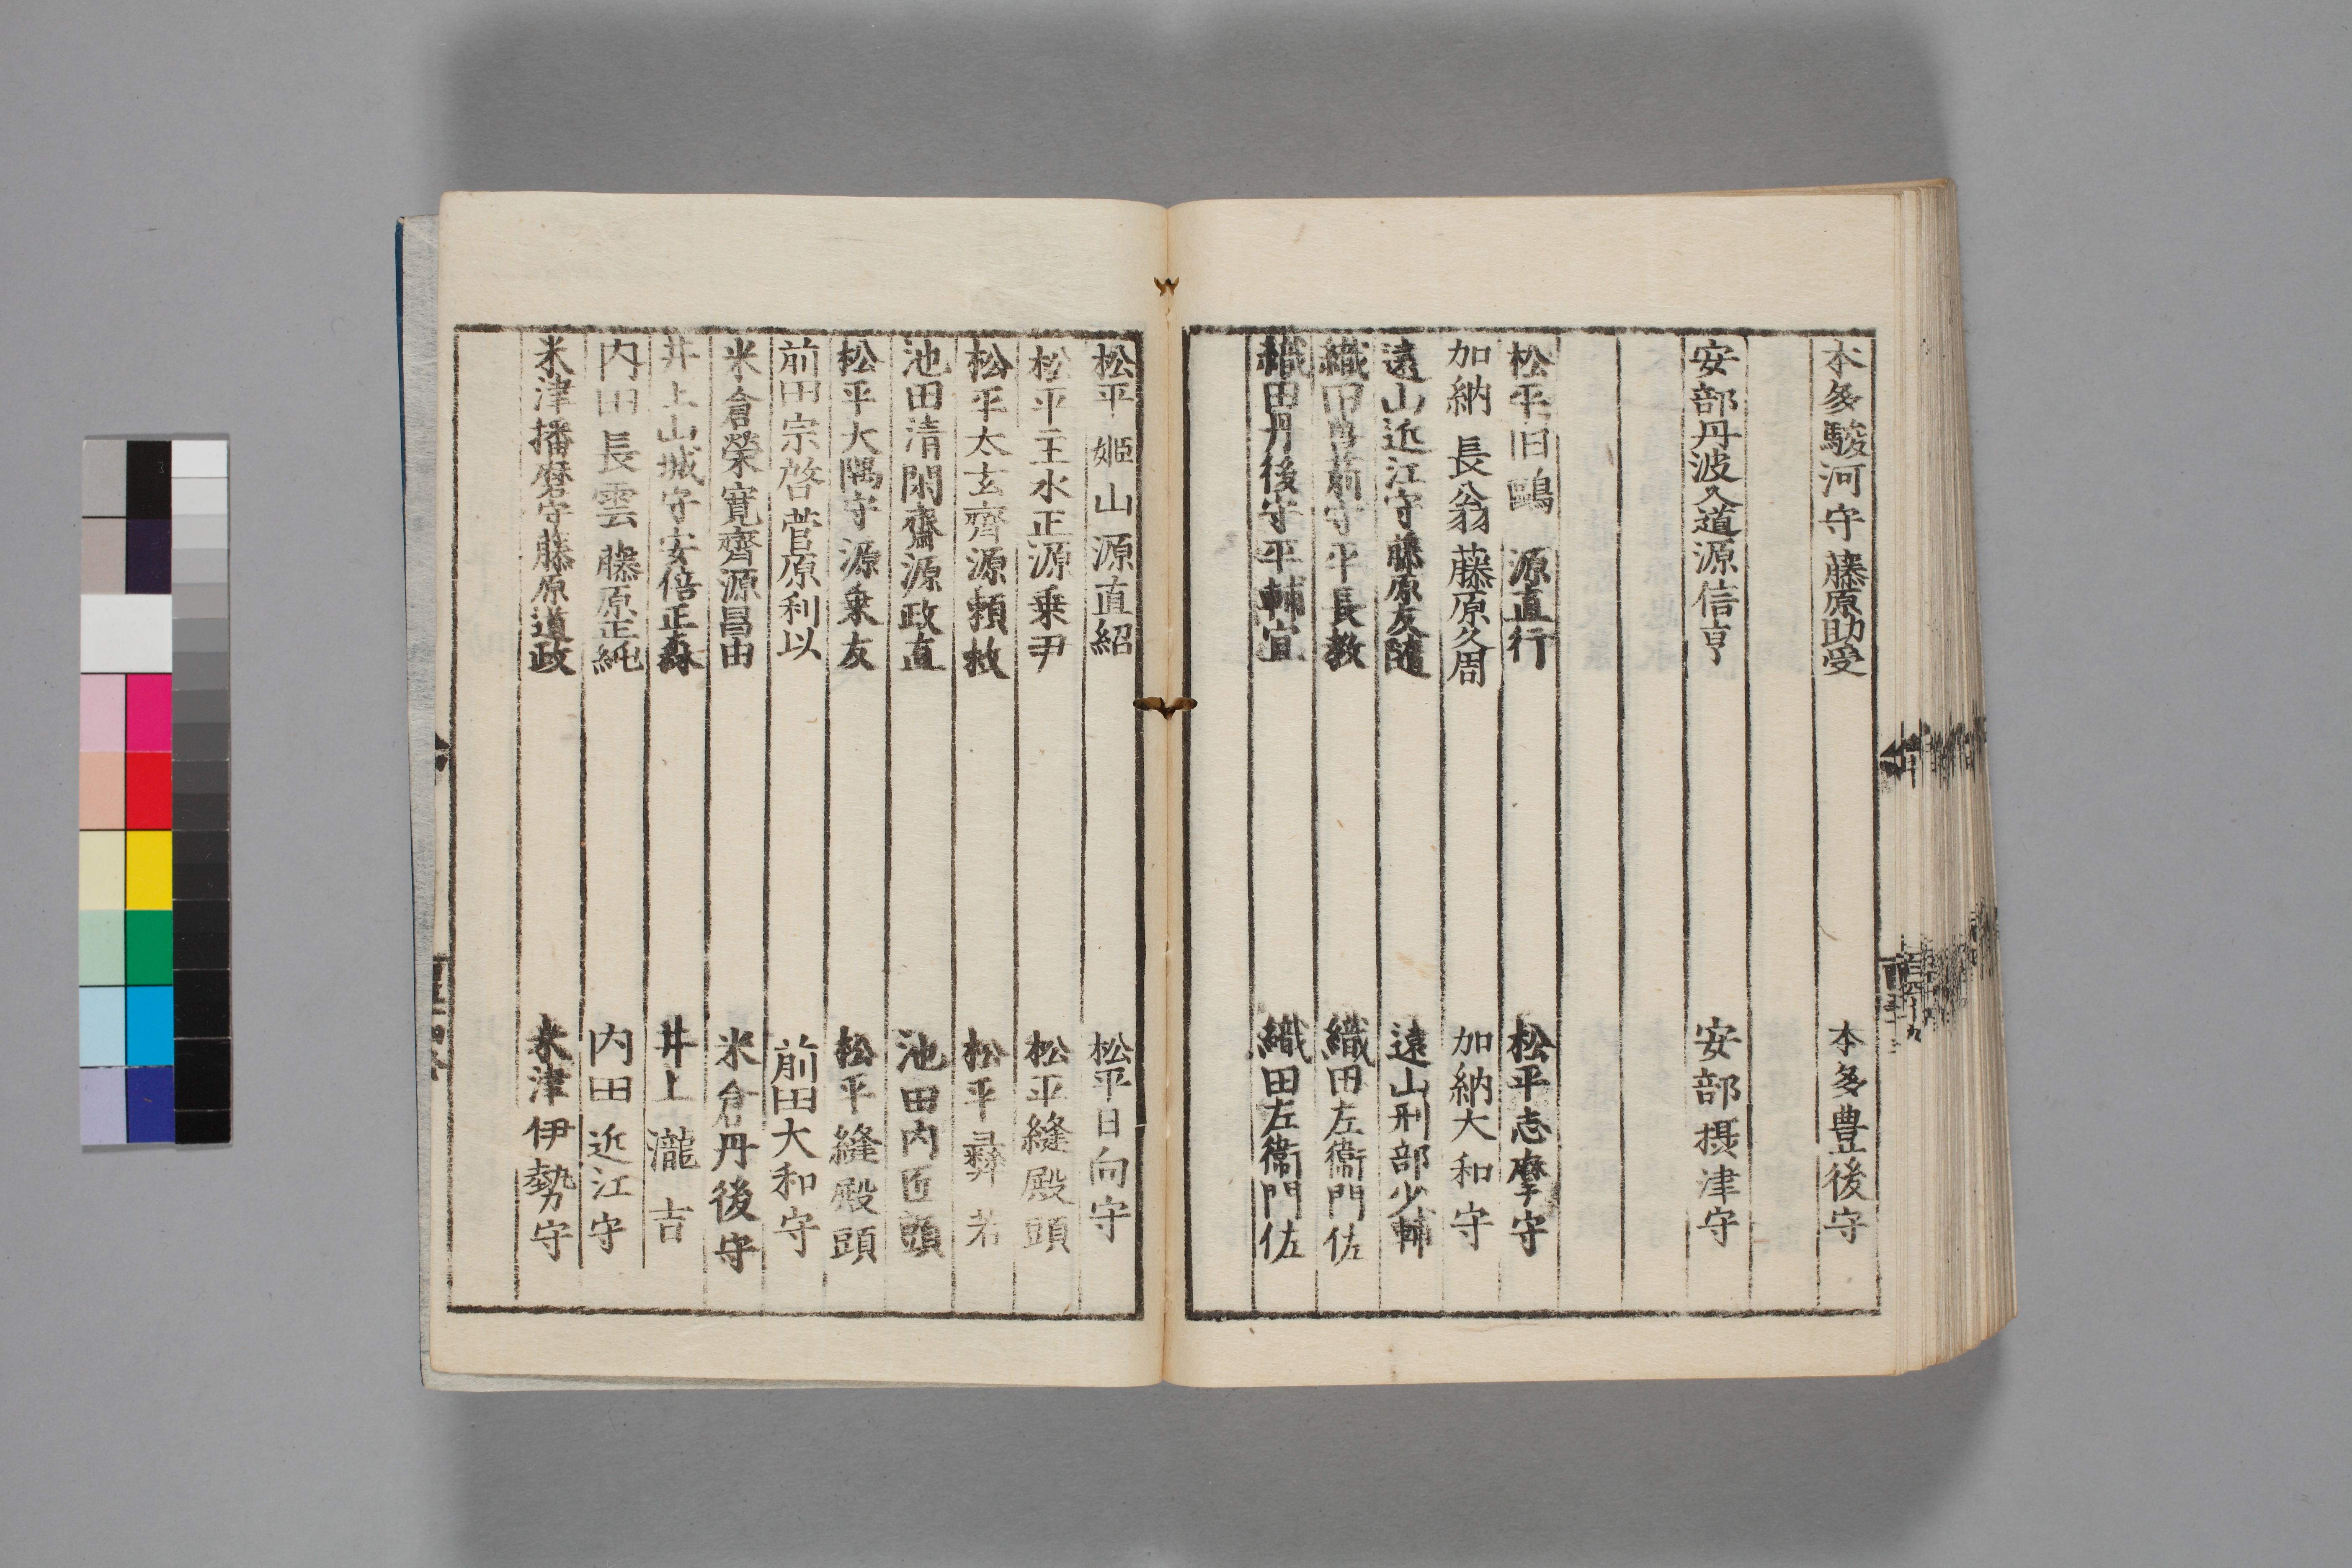 本多駿河守藤原助受　本多豊後守
安部丹波入道源信亨　安部摂津守
松平旧鷗　源直行　松平志摩守
加納　長翁藤原久周　加納大和守
遠山近江守藤原友随　遠山刑部少輔
織田　前守平長教　織田左衞門佐
織田丹後守平輔宜　織田左衞門佐
松平　姫山源直紹　松平日向守
松平主水正源乗尹　松平縫殿頭
松平太玄齊源頼救　松平彛若
池田清閑齋源政直　池田内匠頭
松平大隅守源乗友　松平縫殿頭
前田宗啓菅原利以　前田大和守
米倉榮寛齊源昌由　米倉丹後守
井上山城守安倍正森　井上瀧吉
内田長雲藤原正純　内田近江守
米津播磨守藤原道政　米津伊勢守